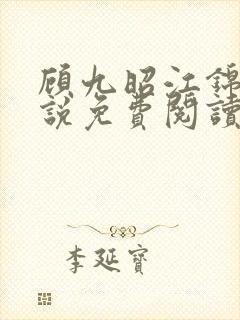 顾九昭江錦
說免費閱讀
李延寶